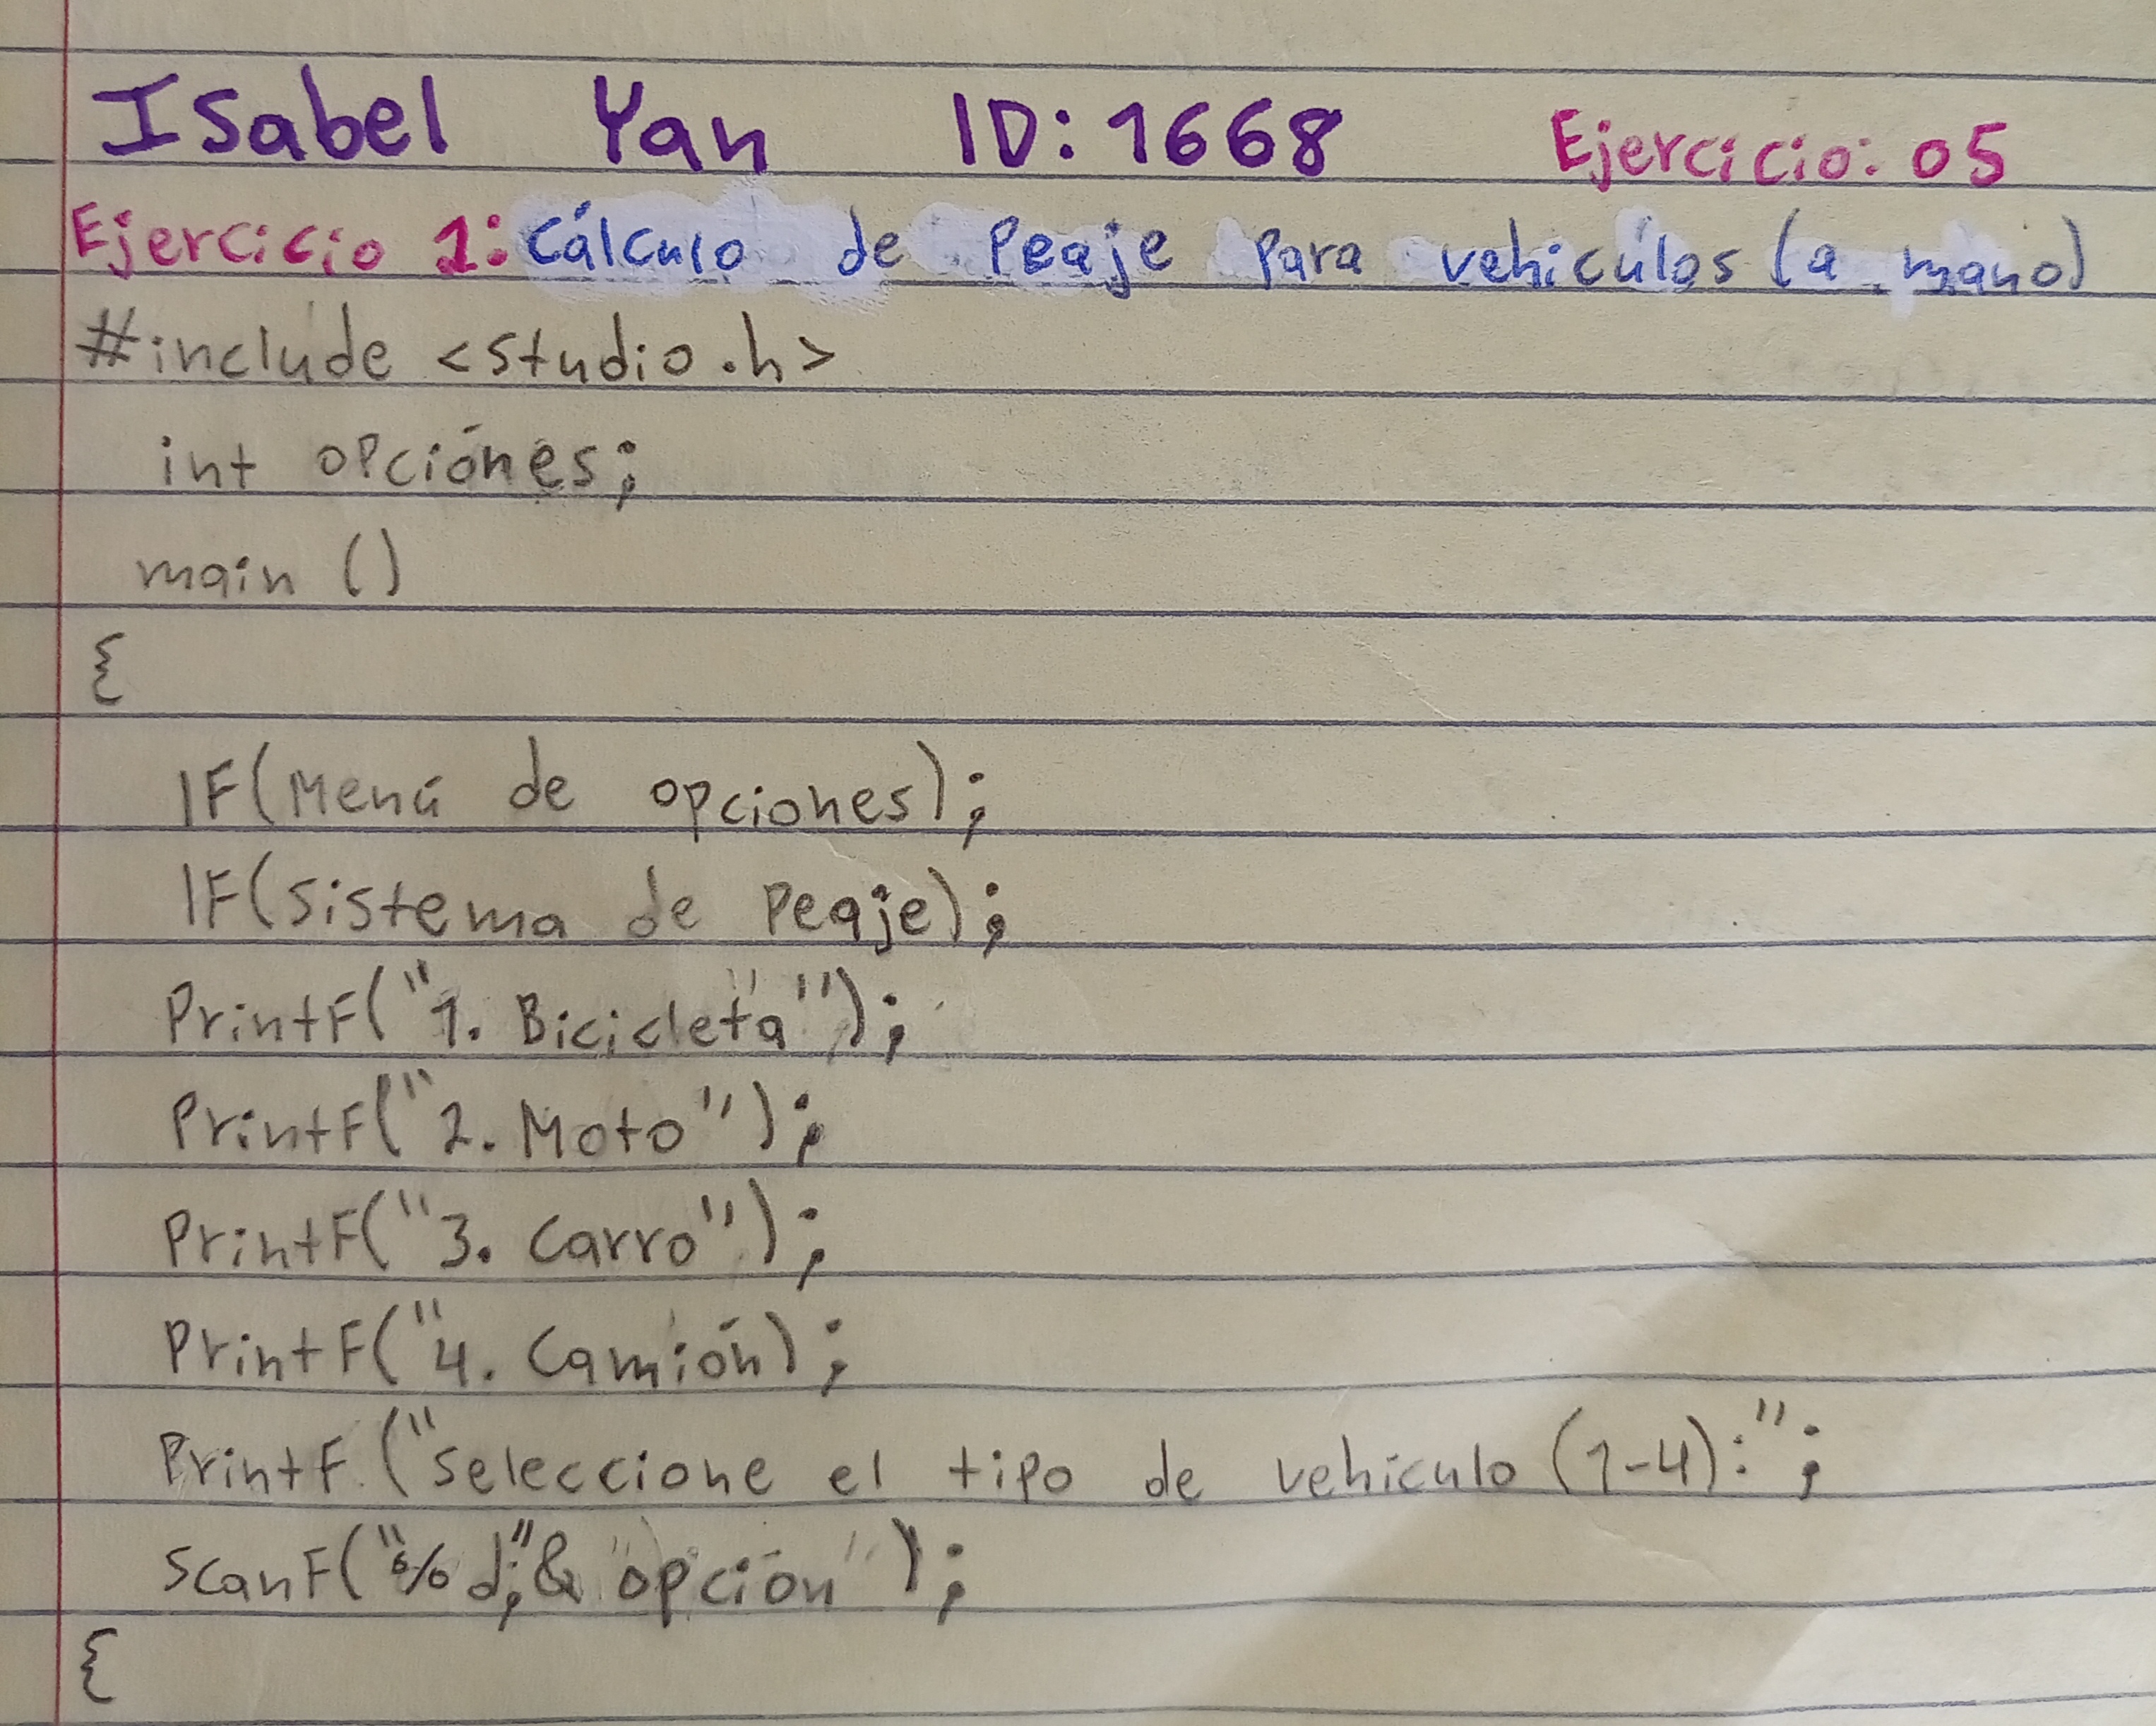 Isabel Yan ID: 1668 Ejercicio: 05
Ejercicio 1: Cálculo de Peaje para vehicúlos (a mano)
#include <studio.h>
int opciónes;
main ()
{
IF(Menú de opciones);
IF(sistema de Peaje);
PrintF("1. Bicicleta");
PrintF("2. Moto");
PrintF("3. Carro");
PrintF("4. Camión);
PrintF ("seleccione el tipo de vehiculo (1-4):";
scanF("%d;"& opción");
{